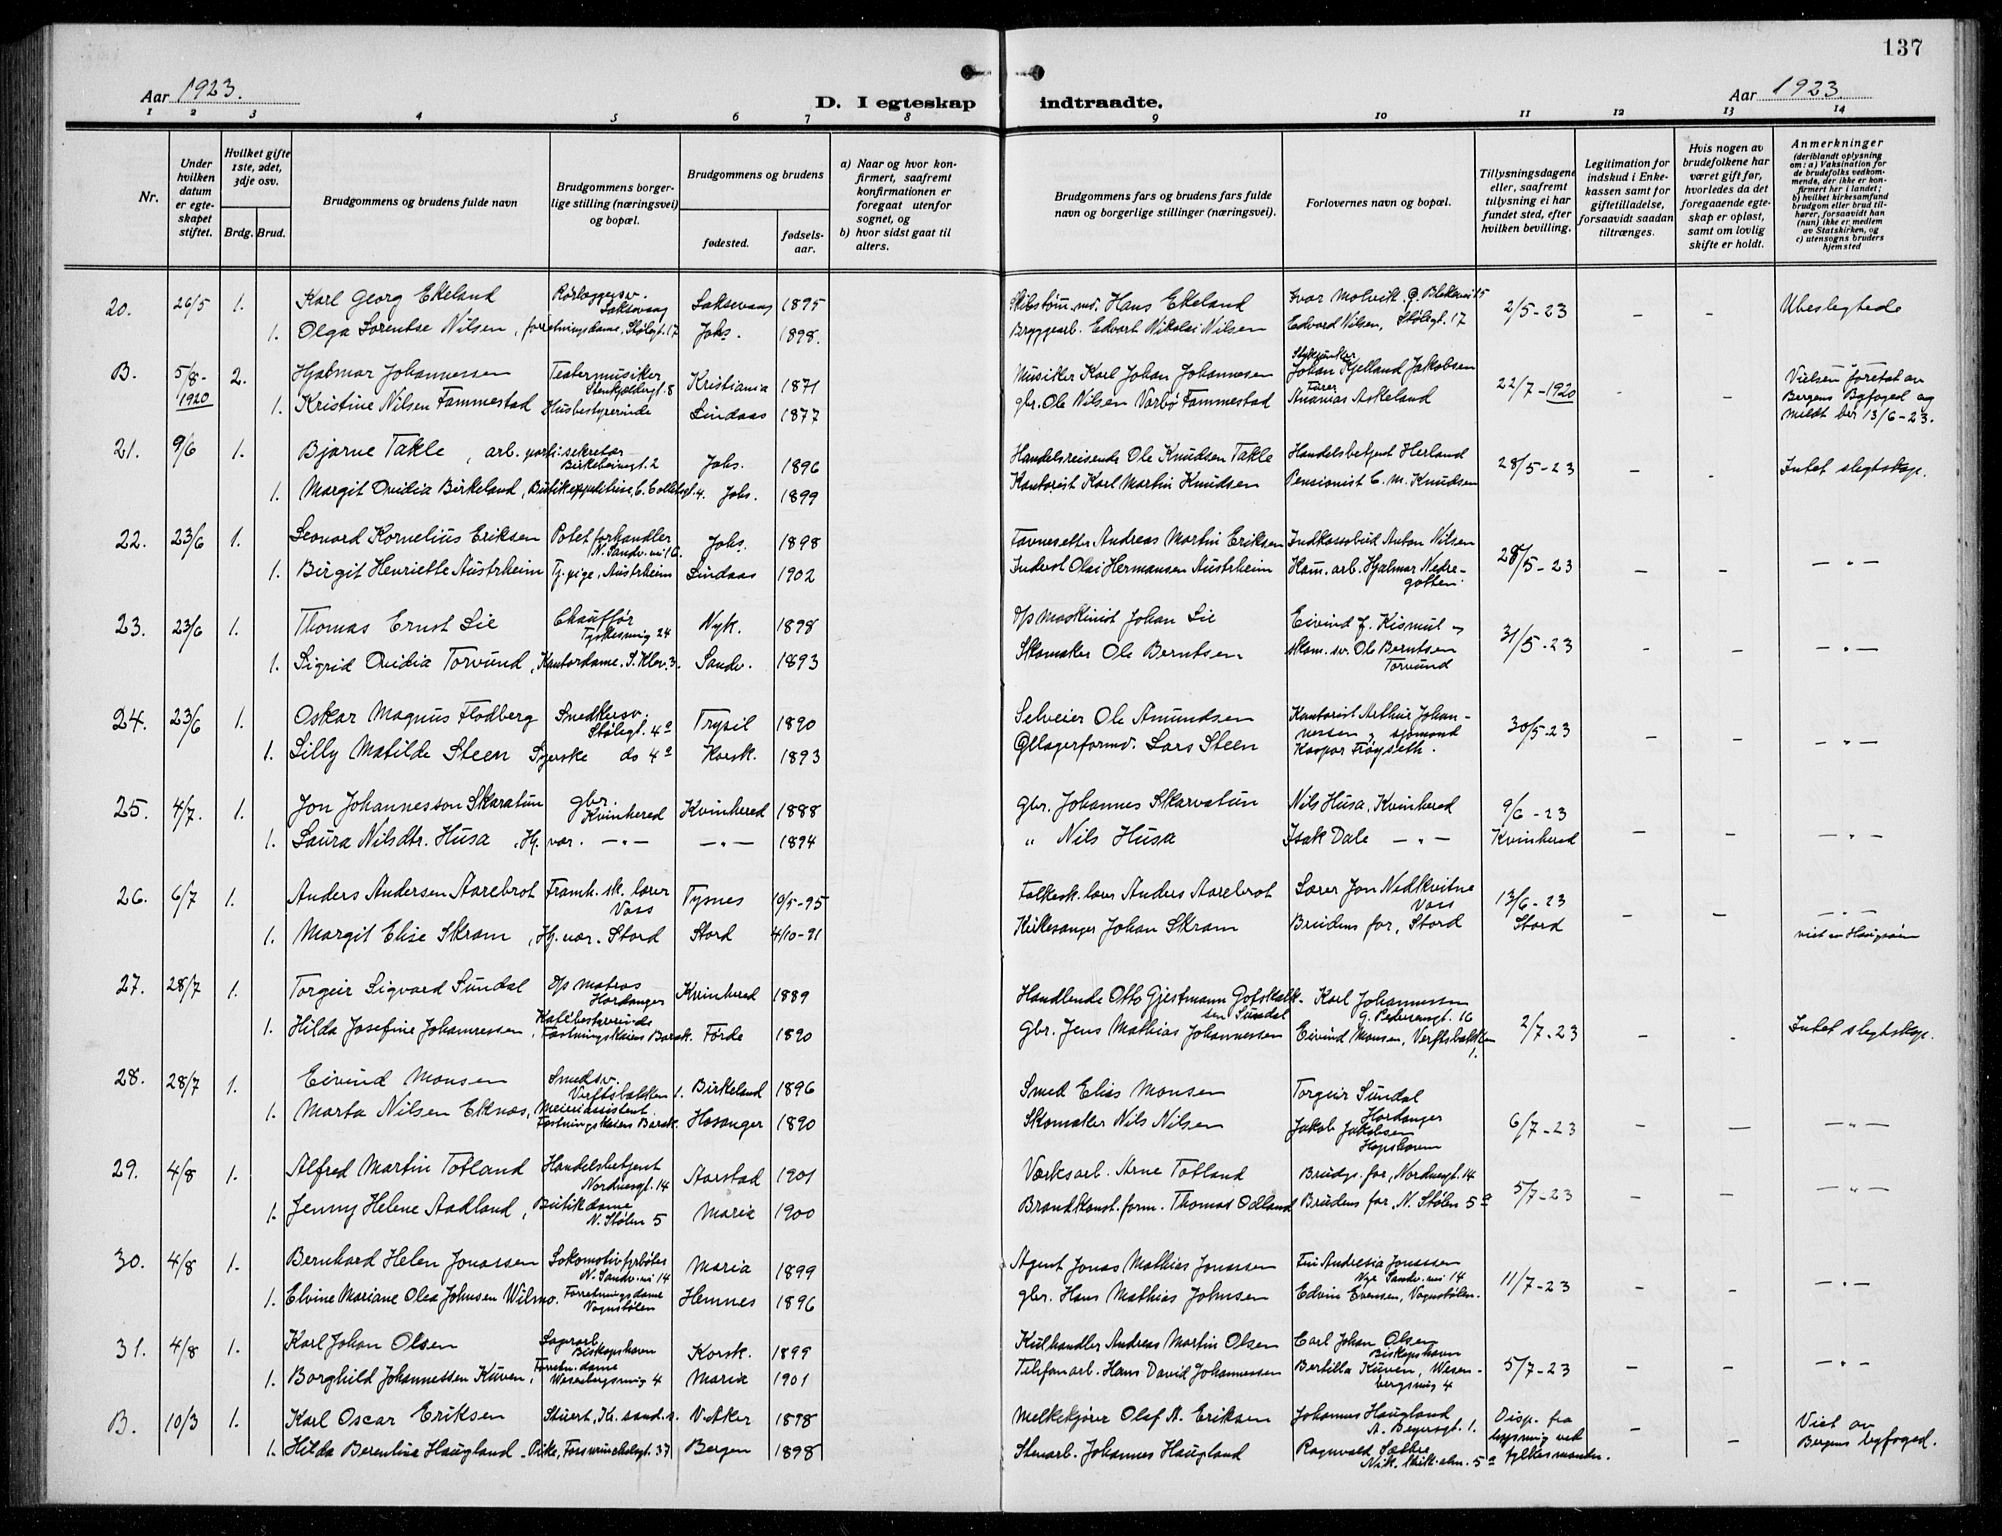 137
Aar 1923.
D. I egteskap indtraadte.
Aar 1923.
1 2 3 4 5 6 7 8 9 10 11 12 13 14
Nr.
Under hvilken datum er egte-skapet stiftet.
Hvilket gifte 1ste, 2det, 3dje osv.
Brdg. Brud.
Brudgommens og brudens fulde navn
Brudgommens borger-lige stilling (næringsvei) og bopæl.
Brudgommens og brudens
fødested.
fødsels-aar.
a) Naar og hvor kon-firmert, saafremt konfirmationen er foregaat utenfor sognet, og
b) hvor sidst gaat til alters.
Brudgommens fars og brudens fars fulde navn og borgerlige stillinger (næringsvei).
Forlovernes navn og bopæl.
Tillysningsdagene eller, saafremt tillysning ei har fundet sted, efter hvilken bevilling.
Legitimation for indskud i Enke-kassen samt for giftetilladelse, forsaavidt saadan tiltrænges.
Hvis nogen av brudefolkene har været gift før, hvorledes da det foregaaende egte-skap er opløst, samt om lovlig skifte er holdt.
Anmerkninger (deriblandt oplysning om: a) Vaksination for de brudefolks vedkom-mende, der ikke er kon-firmert her i landet; b) hvilket kirkesamfund brudgom eller brud til-hører, forsaavidt han (hun) ikke er medlem av Statskirken, og c) utensogns bruders hjemsted
20. 26/5 1. Karl Georg Ekeland Rørlæggersv. Laksevaag Laksevaag 1895 Skibstøm.md. Hans Ekeland Ivar Molvik 2/5-23 - - Ubeslegtede
1. Olga Sørentse Nilsen, forretningsdame, Stølegt. 17 Johs. 1898. Bryggearb. Edvart Nikolai Nilsen Edvard Nilsen, Stølegt. 17
B. 5/8-1920 2. Hjalmar Johannessen Teatermusiker Stenkjeldergt. 8 Kristiania 1871 Musiker Karl Johan Johannesen Johan Kjelland Jakobsen 22/7-1920 - - Vielsen foretat av Bergens Byfoged og meldt her 13/6-23.
1. Kristine Nilsen Fammestad Husbestyrerinde Lindaas 1877 gbr. Ole Nilsen Varbø Fammestad Ananias Askeland
21. 9/6 1. Bjarne Takle, arb. parti-sekretær Birkebeinegt. 2 Johs. 1896 Handelsreisende Ole Knudsen Takle Handelsbetjent Herland 28/5-23 - - Intet slegtskap.
1. Margit Ovidia Birkeland, Butikexpeditrise, C. Colletsgt. 4. Johs. 1899 Kontorist Karl Martin Knudsen Pensionist C. M. Knudsen
22. 23/6 1. Leonard Kornelius Eriksen Potetforhandler N. Sandv.vei 16 Johs. 1898 Favnesetter Andreas Martin Eriksen Indkassobud Anton Nilsen 28/5-23 - - -"-
1. Birgit Henriette Austrheim Tj.pige, Austrheim Lindaas 1902 Inderst Olai Hermansen Austrheim Kom. arb. Hjalmar Nedregotten.
23. 23/6 1. Thomas Ernst Lie Chauffør Tyskesmug 24 Nyk. 1898 D/S Maskinist Johan Lie Eivind J. Kismul og 31/5-23 - - -"-
1. Sigrid Ovidia Torvund, Kontordame, S. Klev. 3. Sandv. 1893 Skomaker Ole Berntsen. Skom. sv. Ole Berntsen Torvund
24. 23/6 1. Oskar Magnus Flodberg Snedkersv. Stølegt. 4a Trysil 1890 Selveier Ole Amundsen Kontorist Arthur Johannessen og sjømand 30/5-23 - - -"-
1. Lilly Matilde Steen Syerske do 4a Korsk. 1893 Øllagerformd. Lars Steen Kaspar Frøyseth.
25. 4/7. 1. Jon Johannesson Skaratun gbr. Kvinherad Kvinherad 1888 gbr. Johannes Skarvatun Nils Husa, Kvinherad 9/6-23 - - -"-
1. Laura Nilsdtr. Husa, Hj.vær. -"- -"- 1894 " Nils Husa Isak Dale -"- Kvinherad
26. 6/7 1. Anders Andersen Aarebrot Framh. sk. lærer Voss Tysnes 10/5-95 Folkesk. lærer Anders Aarebrot Lærer Jon Nedkvitne Voss 13/6-23 - - -"-
1. Margit Elise Skram, Hj.vær. Stord Stord 4/10-91 Kirkesanger Johan Skram Brudens far, Stord Stord viet av
27. 28/7 1. Torgeir Sigvard Sundal D/S Matros Hardanger Kvinherad 1889 Handlende Otto Gjestmann Gotskalksen Sundal Karl Johannessen G. Pedersensgt. 16 2/7-23 - - Intet slegtskap.
1. Hilda Josefine Johannessen, Kafébestyrerinde Festningskaiens Barak. Førde 1890 gbr. Jens Mathias Johannessen Eivind Monsen, Verftsbakken 1.
28. 28/7 1. Eivind Monsen Smedsv. Verftsbakken 1. Birkeland 1896 Smed Elias Monsen Torgeir Sundal Hardanger 6/7-23 - - -"-
1. Marta Nilsen Eknæs, Meieriassistent Festningskaiens Barak. Hosanger 1890 Skomaker Nils Nilsen Jakob Jakobsen Hopshavn
29. 4/8 1. Alfred Martin Totland Handelsbetjent Nordnesgt. 14 Aarstad 1901 Værksarb. Arne Totland Brudg. far, Nordnesgt. 14 5/7-23 - - -"-
1. Jenny Helene Aadland, Butikdame N. Stølen 5 Maria 1900 Brandkonst. form. Thomas Odland Brudens far, N. Stølen 5a
30. 4/8 1. Bernhard Helen Jonassen Lokomotivfyrbøter N. Sandv.vei 14 Maria 1899 Agent Jonas Mathias Jonassen Fru Andresia Jonassen Nye Sandv.vei 14 11/7-23 - - -"-
1. Elvine Mariane Olea Johnsen Wilmo. Forretningsdame Vognstølen Hemnes 1896 gbr. Hans Mathias Johnsen Edvin Evensen, Vognstølen.
31. 4/8 1. Karl Johan Olsen Lagerarb. Biskopshavn Korsk. 1899 Kulhandler Andreas Martin Olsen Carl Johan Olsen Biskopshavn 5/7-23 - - -"-
1. Borghild Johannessen Kuven, Forretn.dame Wesenbergsmug 4 Maria 1901 Telefonarb. Hans David Johannessen Bertilla Kuven, Wesenbergsmug 4
B. 10/3 1. Karl Oscar Eriksen Stuert, Kr.sand.s. V. Aker 1898 Melkekjører Olaf A. Eriksen Johannes Haugland A. Beyersgt. 1. Disp. fra lysning ved fylkesmanden. - - Viet av Bergens byfoged.
1. Hilda Berentine Haugland. Pike, Forswinckelsgt. 37 Bergen 1898 Stenarb. Johannes Haugland Ragnvald Sætre